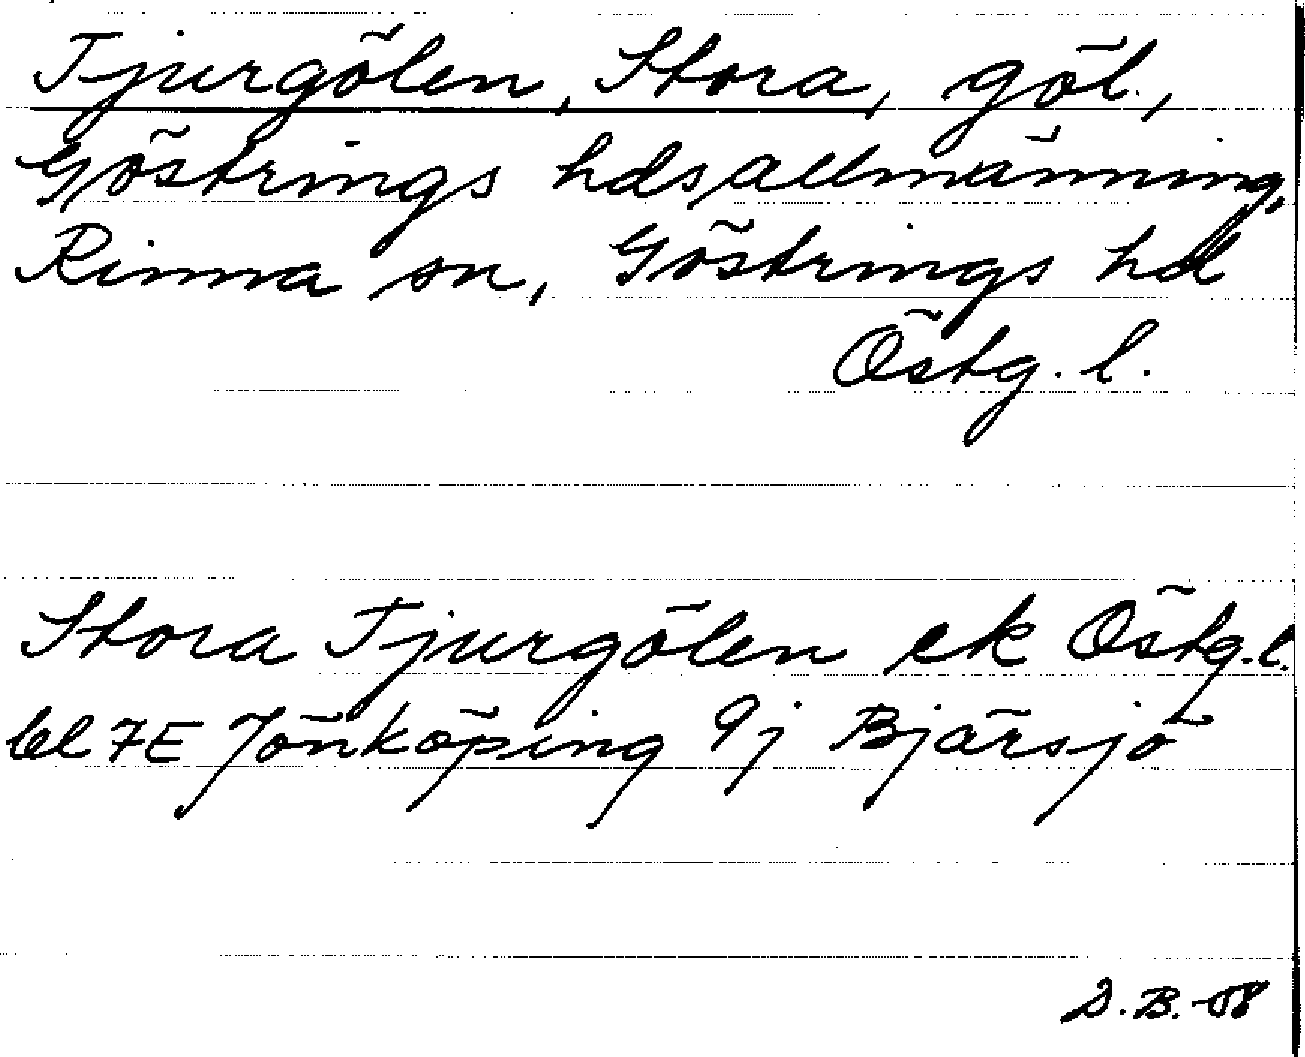 Tjurgölen, Stora, göl.,
Göstrings hdsallmänning,
Rinna sn, Göstrings hd
Östg. l.
Stora Tjurgölen ek Östg.l.
bl 7E Jönköping 9j Bjärsjö
D.B.-08